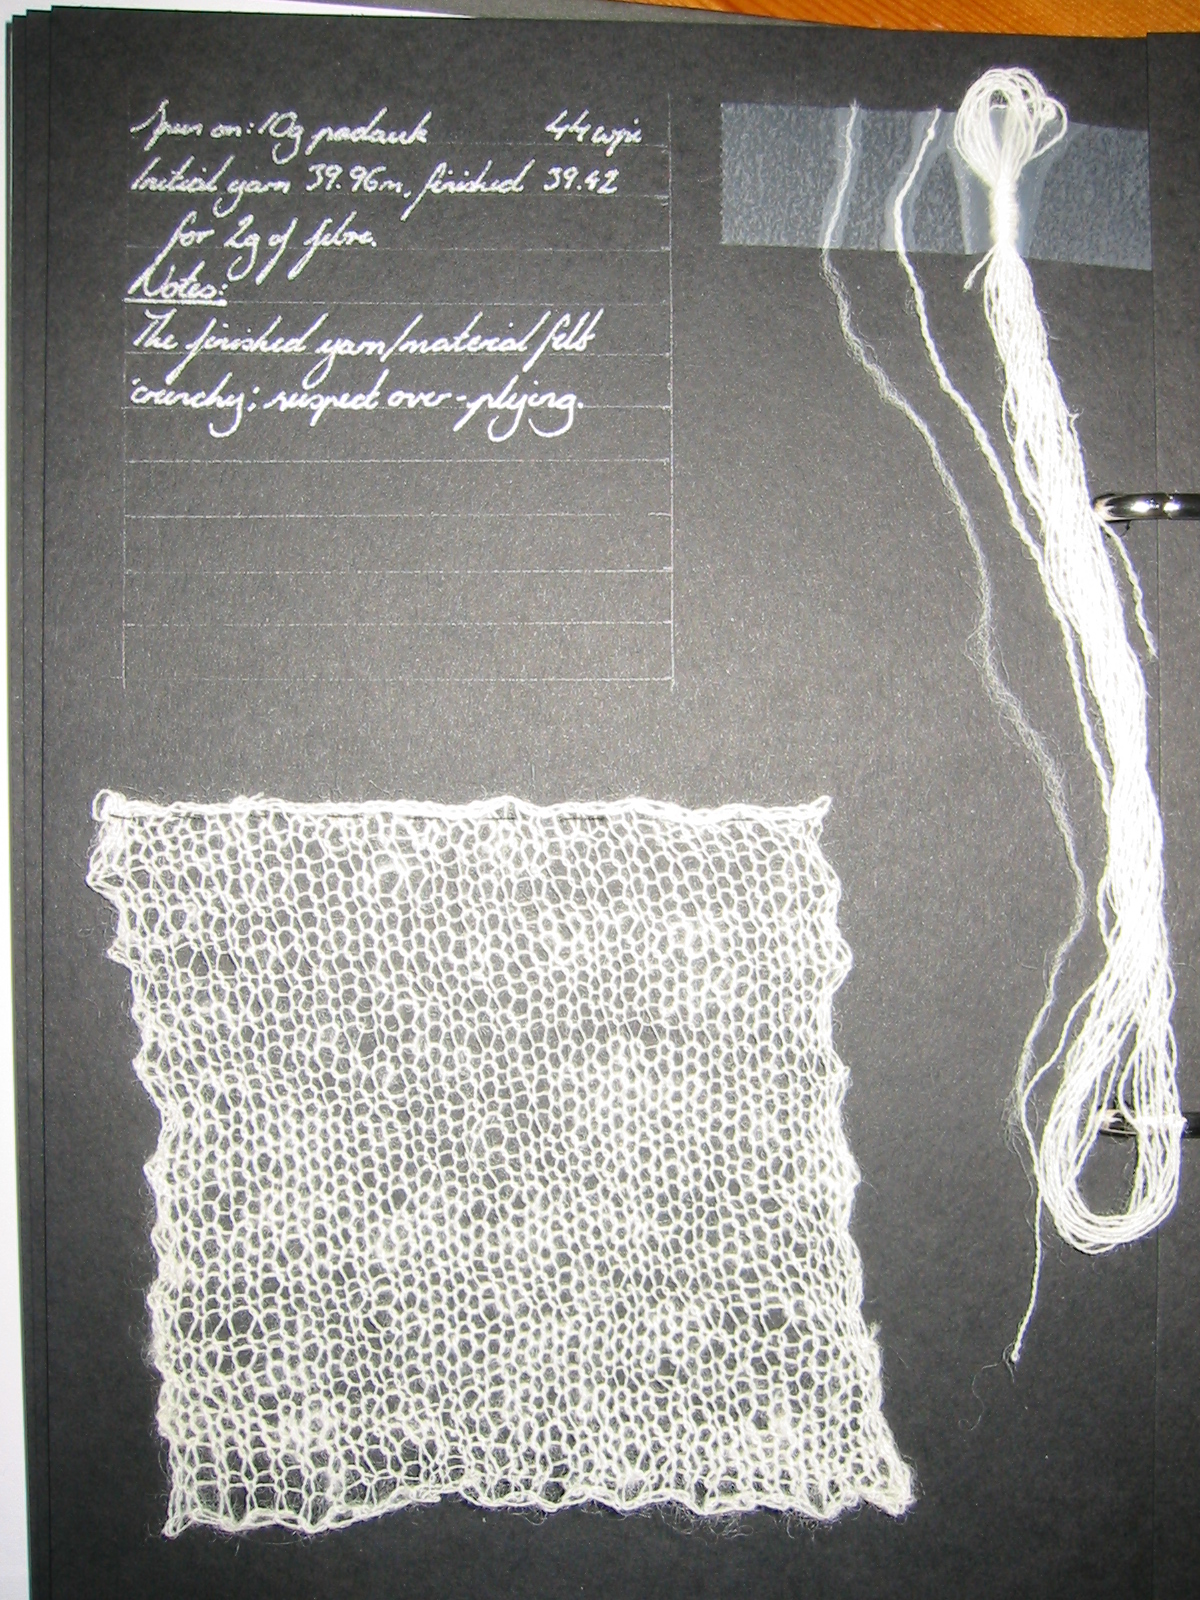 Spun on: 10g padauk 44 wpi
Initial yarn 39.96m, finished 39.42
for 2g of fibre.
Notes:
The finished yarn/material felt
'crunchy; suspect over-plying.